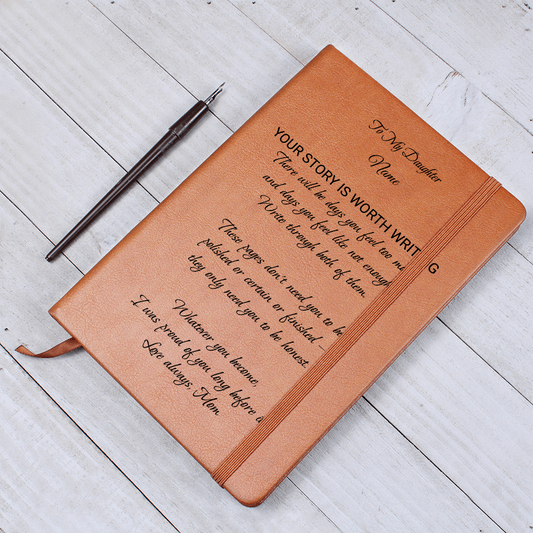 To My Daughter
Name
YOUR STORY IS WORTH WRITING
There will be days you feel too m
and days you feel like not enough.
Write through both of them.
These pages don't need you to be
polished or certain or finished -
they only need you to be honest.
Whatever you become,
I was proud of you long before i
Love always, Mom